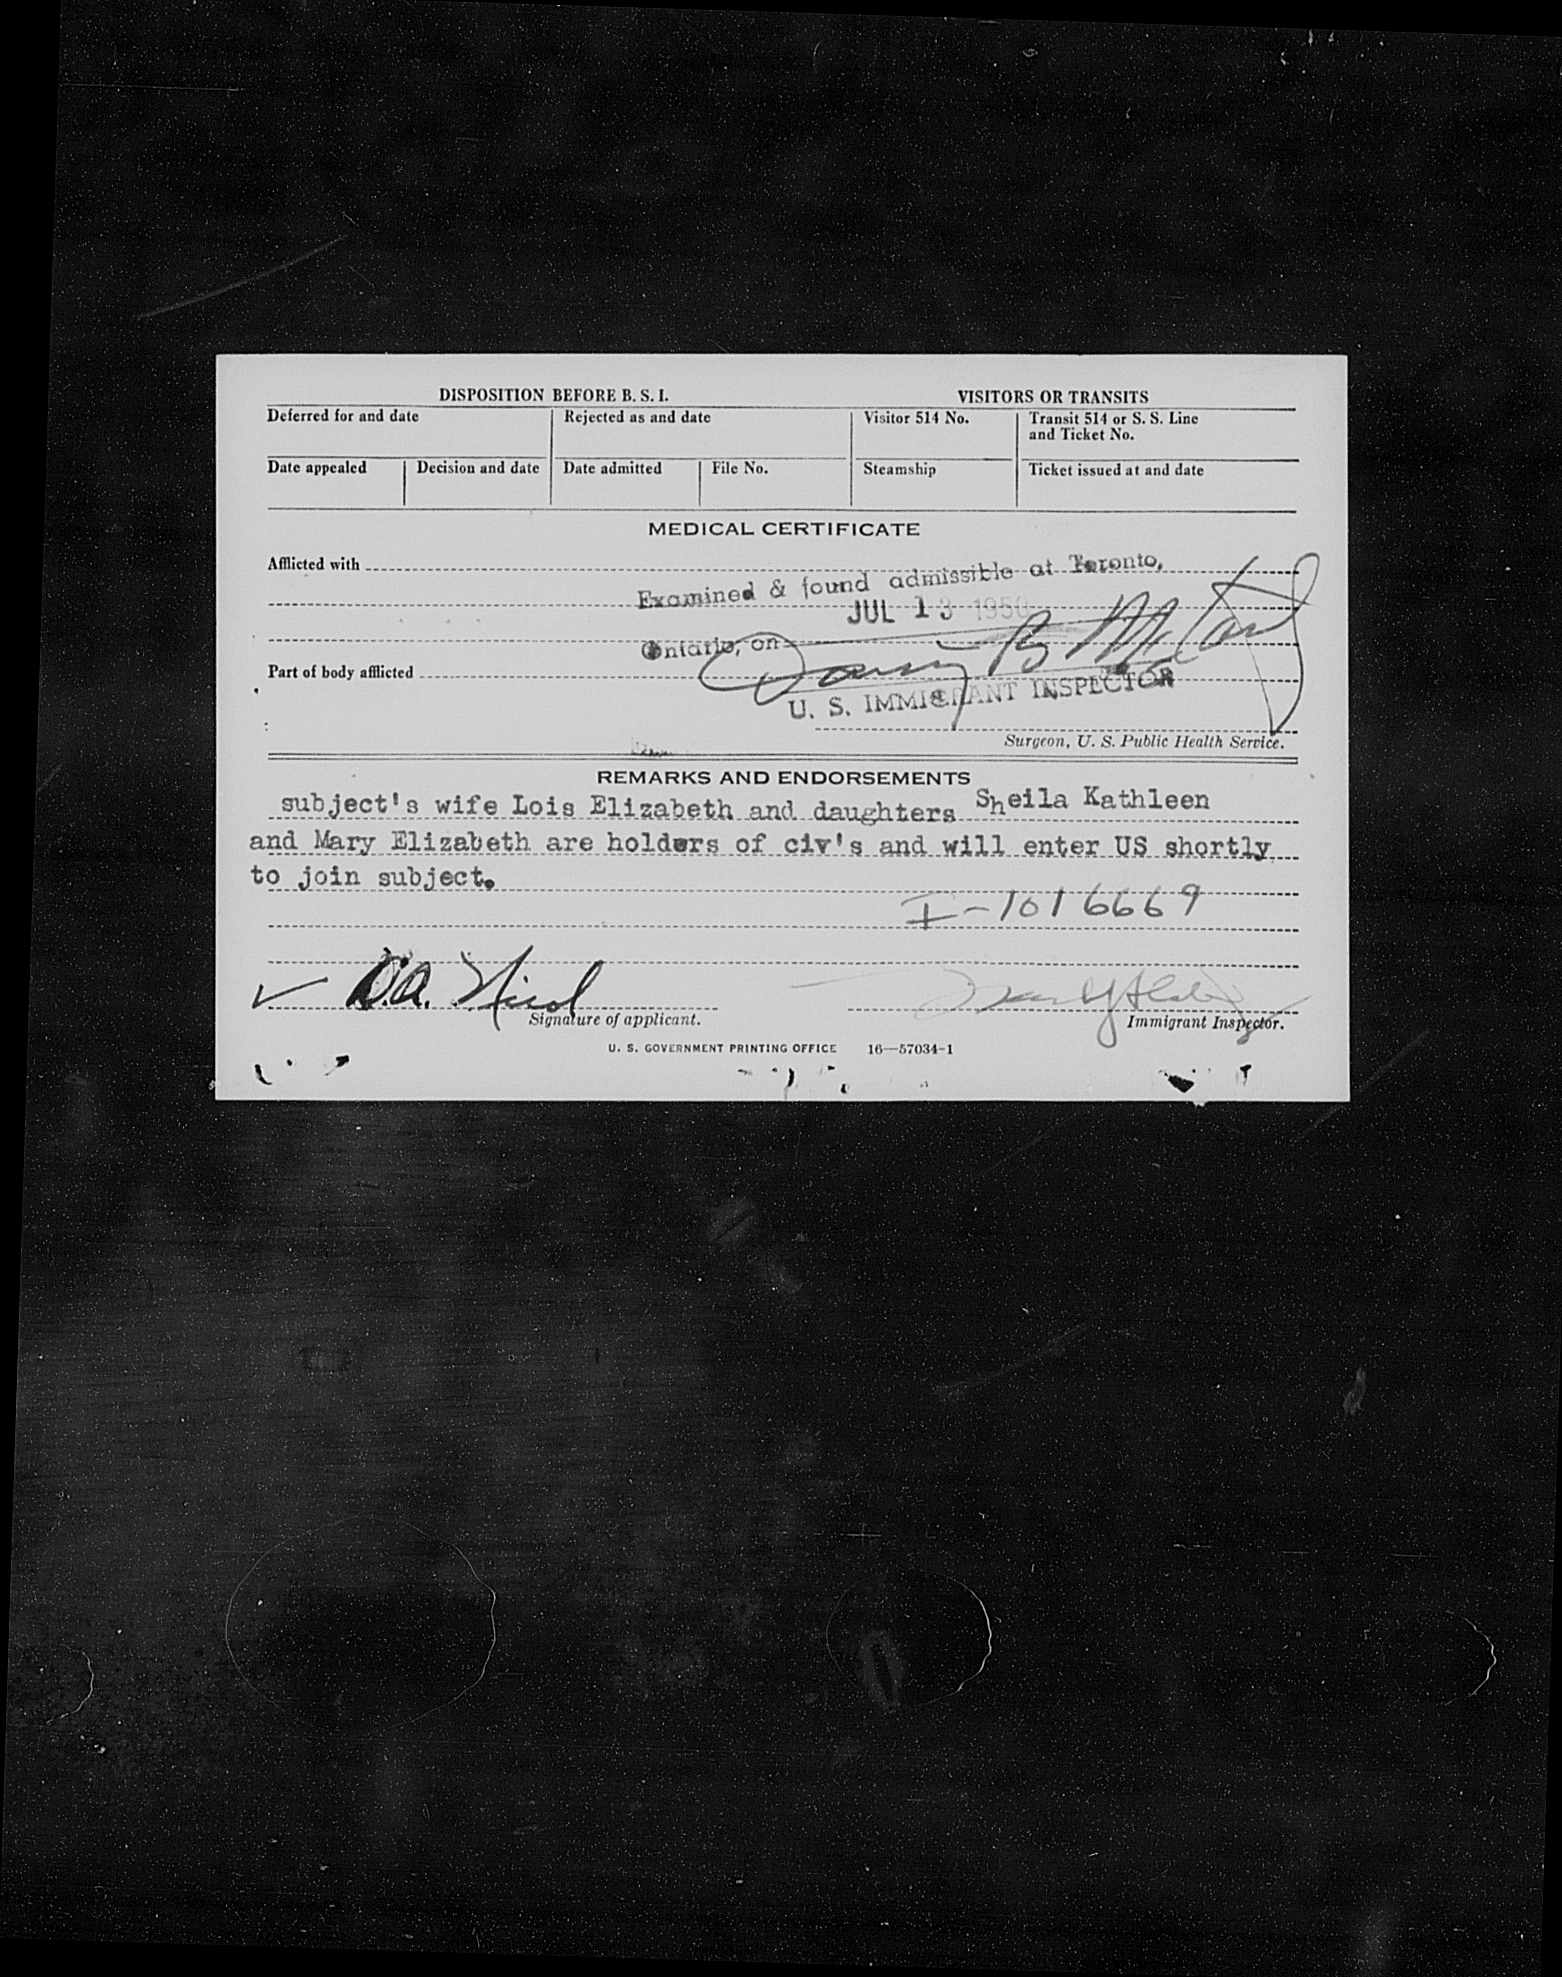 DISPOSITION BEFORE B. S. I. VISITORS OR TRANSITS
Deferred for and date Rejected as and date Visitor 514 No. Transit 514 or S. S. Line
and Ticket No.
Date appealed Decision and date Date admitted File No. Steamship Ticket issued at and date
MEDICAL CERTIFICATE
Afflicted with
Examined & found admissible at Toronto,
JUL 13 1950
Ontario, on
Part of body afflicted
U. S. IMMIGRANT INSPECTOR
Surgeon, U. S. Public Health Service.
REMARKS AND ENDORSEMENTS
subject's wife Lois Elizabeth and daughters Sheila Kathleen
and Mary Elizabeth are holders of civ's and will enter US shortly
to join subject.
I-1016669
Signature of applicant. Immigrant Inspector.
U. S. GOVERNMENT PRINTING OFFICE 16—57034-1